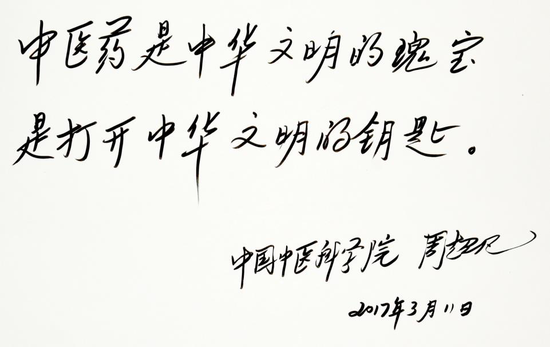 中医药是中华文明的瑰宝
是打开中华文明的钥匙。
中国中医科学院 周超凡
2017年3月11日